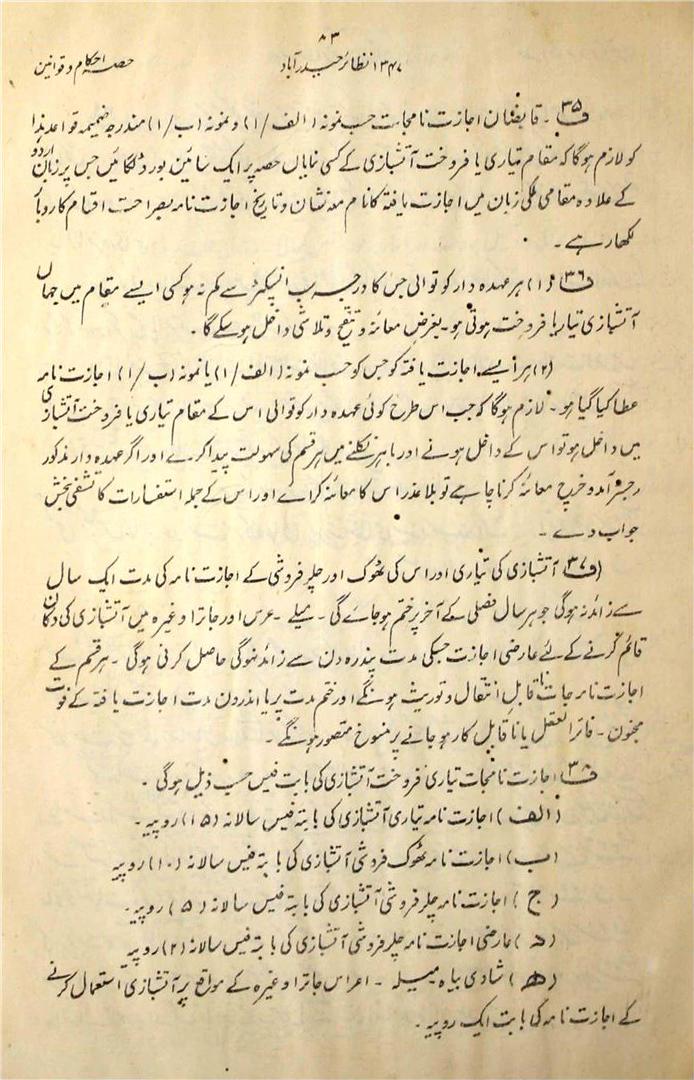 ۸۳
حصہ احکام و قوانین
۱۳۴۷ نظائر حیدرآباد
ف۳۵۔ قابضان اجازت نامجات حسب نمونہ (الف/۱) و نمونہ (ب/۱) مندرجہ ضمیمہ قواعد ہذا
کو لازم ہوگا کہ مقام تیاری یا فروخت آتشبازی کے کسی نمایاں حصہ پر ایک سائین بورڈ لگائیں جس پر زبان اردو
کے علاوہ مقامی ملکی زبان میں اجازت یافتہ کا نام معہ نشان و تاریخ اجازت نامہ بصراحت اقسام کاروبار
لکھا رہے۔
ف۳۶ (۱) ہر عہدہ دار کوتوالی جس کا درجہ سب انسپکٹر سے کم نہ ہو کسی ایسے مقام میں جہاں
آتشبازی تیار یا فروخت ہوتی ہو۔ بغرض معائنہ و تنقیح و تلاشی داخل ہو سکے گا۔
(۲) ہر ایسے اجازت یافتہ کو جس کو حسب نمونہ (الف/۱) یا نمونہ (ب/۱) اجازت نامہ
عطا کیا گیا ہو۔ لازم ہوگا کہ جب اس طرح کوئی عہدہ دار کوتوالی اس کے مقام تیاری یا فروخت آتشبازی
میں داخل ہو تو اس کے داخل ہونے اور باہر نکلنے میں ہر قسم کی سہولت پیدا کرے اور اگر عہدہ دار مذکور
رجسٹر آمد و خرچ معائنہ کرنا چاہے تو بلا عذر اس کا معائنہ کرائے اور اس کے جملہ استفسارات کا تشفی بخش
جواب دے۔
ف۳۷ آتشبازی کی تیاری اور اس کی ٹھوک اور چلر فروشی کے اجازت نامہ کی مدت ایک سال
سے زائد نہ ہوگی جو ہر سال فصلی کے آخر پر ختم ہو جائے گی۔ میلے۔ عرس اور جاترا وغیرہ میں آتشبازی کی دکان
قائم کرنے کے لئے عارضی اجازت جسکی مدت پندرہ دن سے زائد نہوگی حاصل کرنی ہوگی۔ ہر قسم کے
اجازت نامہ جات ناقابل انتقال و توریث ہونگے اور ختم مدت پر یا اندرون مدت اجازت یافتہ کے فوت
مجنون۔ فاتر العقل یا ناقابل کار ہو جانے پر منسوخ متصور ہونگے۔
ف۳۸ اجازت نامجات تیاری فروخت آتشبازی کی بابت فیس حسب ذیل ہوگی۔
(الف) اجازت نامہ تیاری آتشبازی کی بابتہ فیس سالانہ (۱۵) روپیہ۔
(ب) اجازت نامہ ٹھوک فروشی آتشبازی کی بابتہ فیس سالانہ (۱۰) روپیہ
(ج) اجازت نامہ چلر فروشی آتشبازی کی بابتہ فیس سالانہ (۵) روپیہ۔
(د) عارضی اجازت نامہ چلر فروشی آتشبازی کی بابتہ فیس سالانہ (۲) روپیہ
(ھ) شادی بیاہ میلہ۔ اعراس جاترا وغیرہ کے مواقع پر آتشبازی استعمال کرنے
کے اجازت نامہ کی بابت ایک روپیہ۔